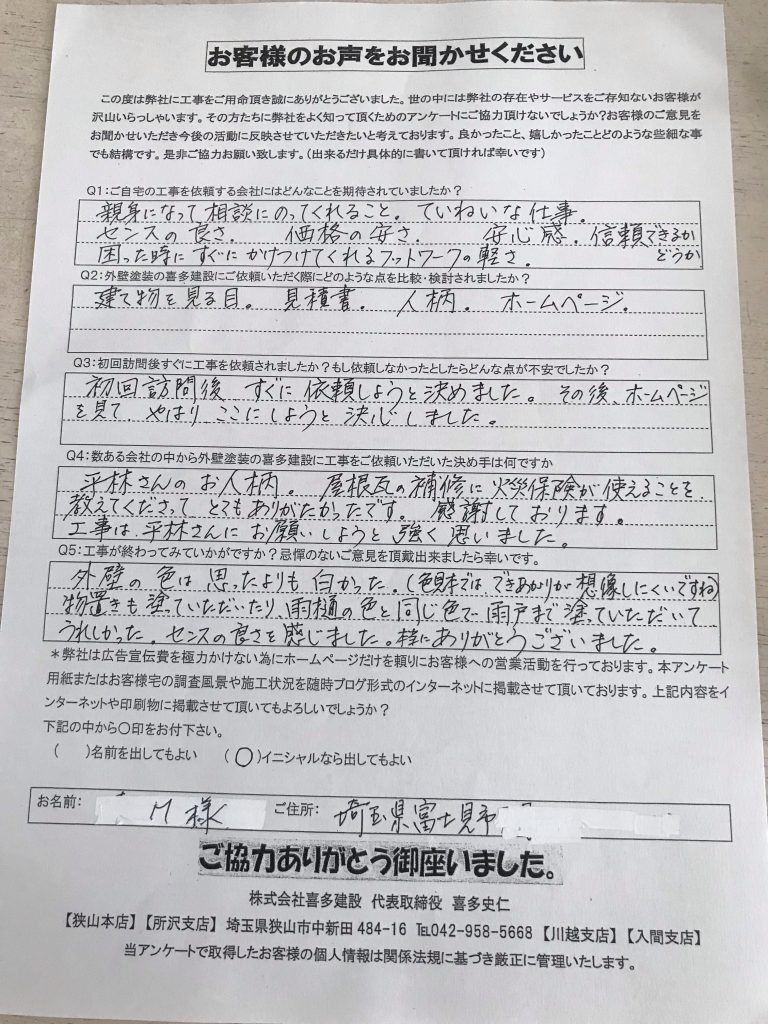 お客様のお声をお聞かせください
この度は弊社に工事をご用命頂き誠にありがとうございました。世の中には弊社の存在やサービスをご存知ないお客様が
沢山いらっしゃいます。その方たちに弊社をよく知って頂くためのアンケートにご協力頂けないでしょうか？お客様のご意見を
お聞かせいただき今後の活動に反映させていただきたいと考えております。良かったこと、嬉しかったことどのような些細な事
でも結構です。是非ご協力お願い致します。（出来るだけ具体的に書いて頂ければ幸いです）
Q1：ご自宅の工事を依頼する会社にはどんなことを期待されていましたか？
親身になって相談にのってくれること。ていねいな仕事。
センスの良さ。 価格の安さ。 安心感。信頼できるか
困った時にすぐにかけつけてくれるフットワークの軽さ。 どうか
Q2：外壁塗装の喜多建設にご依頼いただく際にどのような点を比較・検討されましたか？
建て物を見る目。 見積書。 人柄。 ホームページ。
Q3：初回訪問後すぐに工事を依頼されましたか？もし依頼しなかったとしたらどんな点が不安でしたか？
初回訪問後 すぐに依頼しようと決めました。その後、ホームページ
を見て、やはり、ここにしようと決心しました。
Q4：数ある会社の中から外壁塗装の喜多建設に工事をご依頼いただいた決め手は何ですか
平林さんのお人柄。 屋根瓦の補修に火災保険が使えることを、
教えてくださって とてもありがたかったです。 感謝しております。
工事は、平林さんにお願いしようと強く思いました。
Q5：工事が終わってみていかがですか？忌憚のないご意見を頂戴出来ましたら幸いです。
外壁の色は思ったよりも白かった。（色見本では、できあがりが想像しにくいですね）
物置きも塗っていただいたり、雨樋の色と同じ色で雨戸まで塗っていただいて
うれしかった。センスの良さを感じました。本当にありがとうございました。
＊弊社は広告宣伝費を極力かけない為にホームページだけを頼りにお客様への営業活動を行っております。本アンケート
用紙またはお客様宅の調査風景や施工状況を随時ブログ形式のインターネットに掲載させて頂いております。上記内容をイ
ンターネットや印刷物に掲載させて頂いてもよろしいでしょうか？
下記の中から○印をお付下さい。
（ ）名前を出してもよい （○）イニシャルなら出してもよい
お名前： M様 ご住所： 埼玉県富士見市
ご協力ありがとう御座いました。
株式会社喜多建設 代表取締役 喜多史仁
【狭山本店】【所沢支店】 埼玉県狭山市中新田484-16 ℡042-958-5668 【川越支店】【入間支店】
当アンケートで取得したお客様の個人情報は関係法規に基づき厳正に管理いたします。